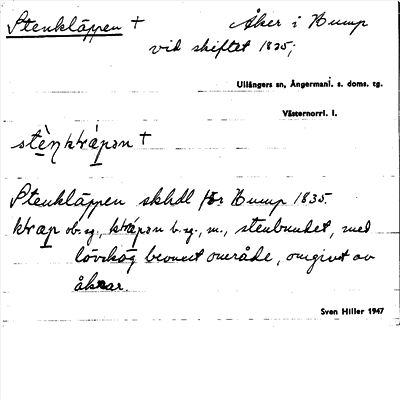 Stenkläppen + Åker i Kump
vid skiftet 1835;
Ullångers sn, Ångermanl. s. doms. tg.
Västernorrl. l.
Stenkläppen skhdl för Kump 1835.
ob.sg., b.sg., m., stenbundet, med
lövskog bevuxet område, omgivet av
åkrar.
Sven Hiller 1947